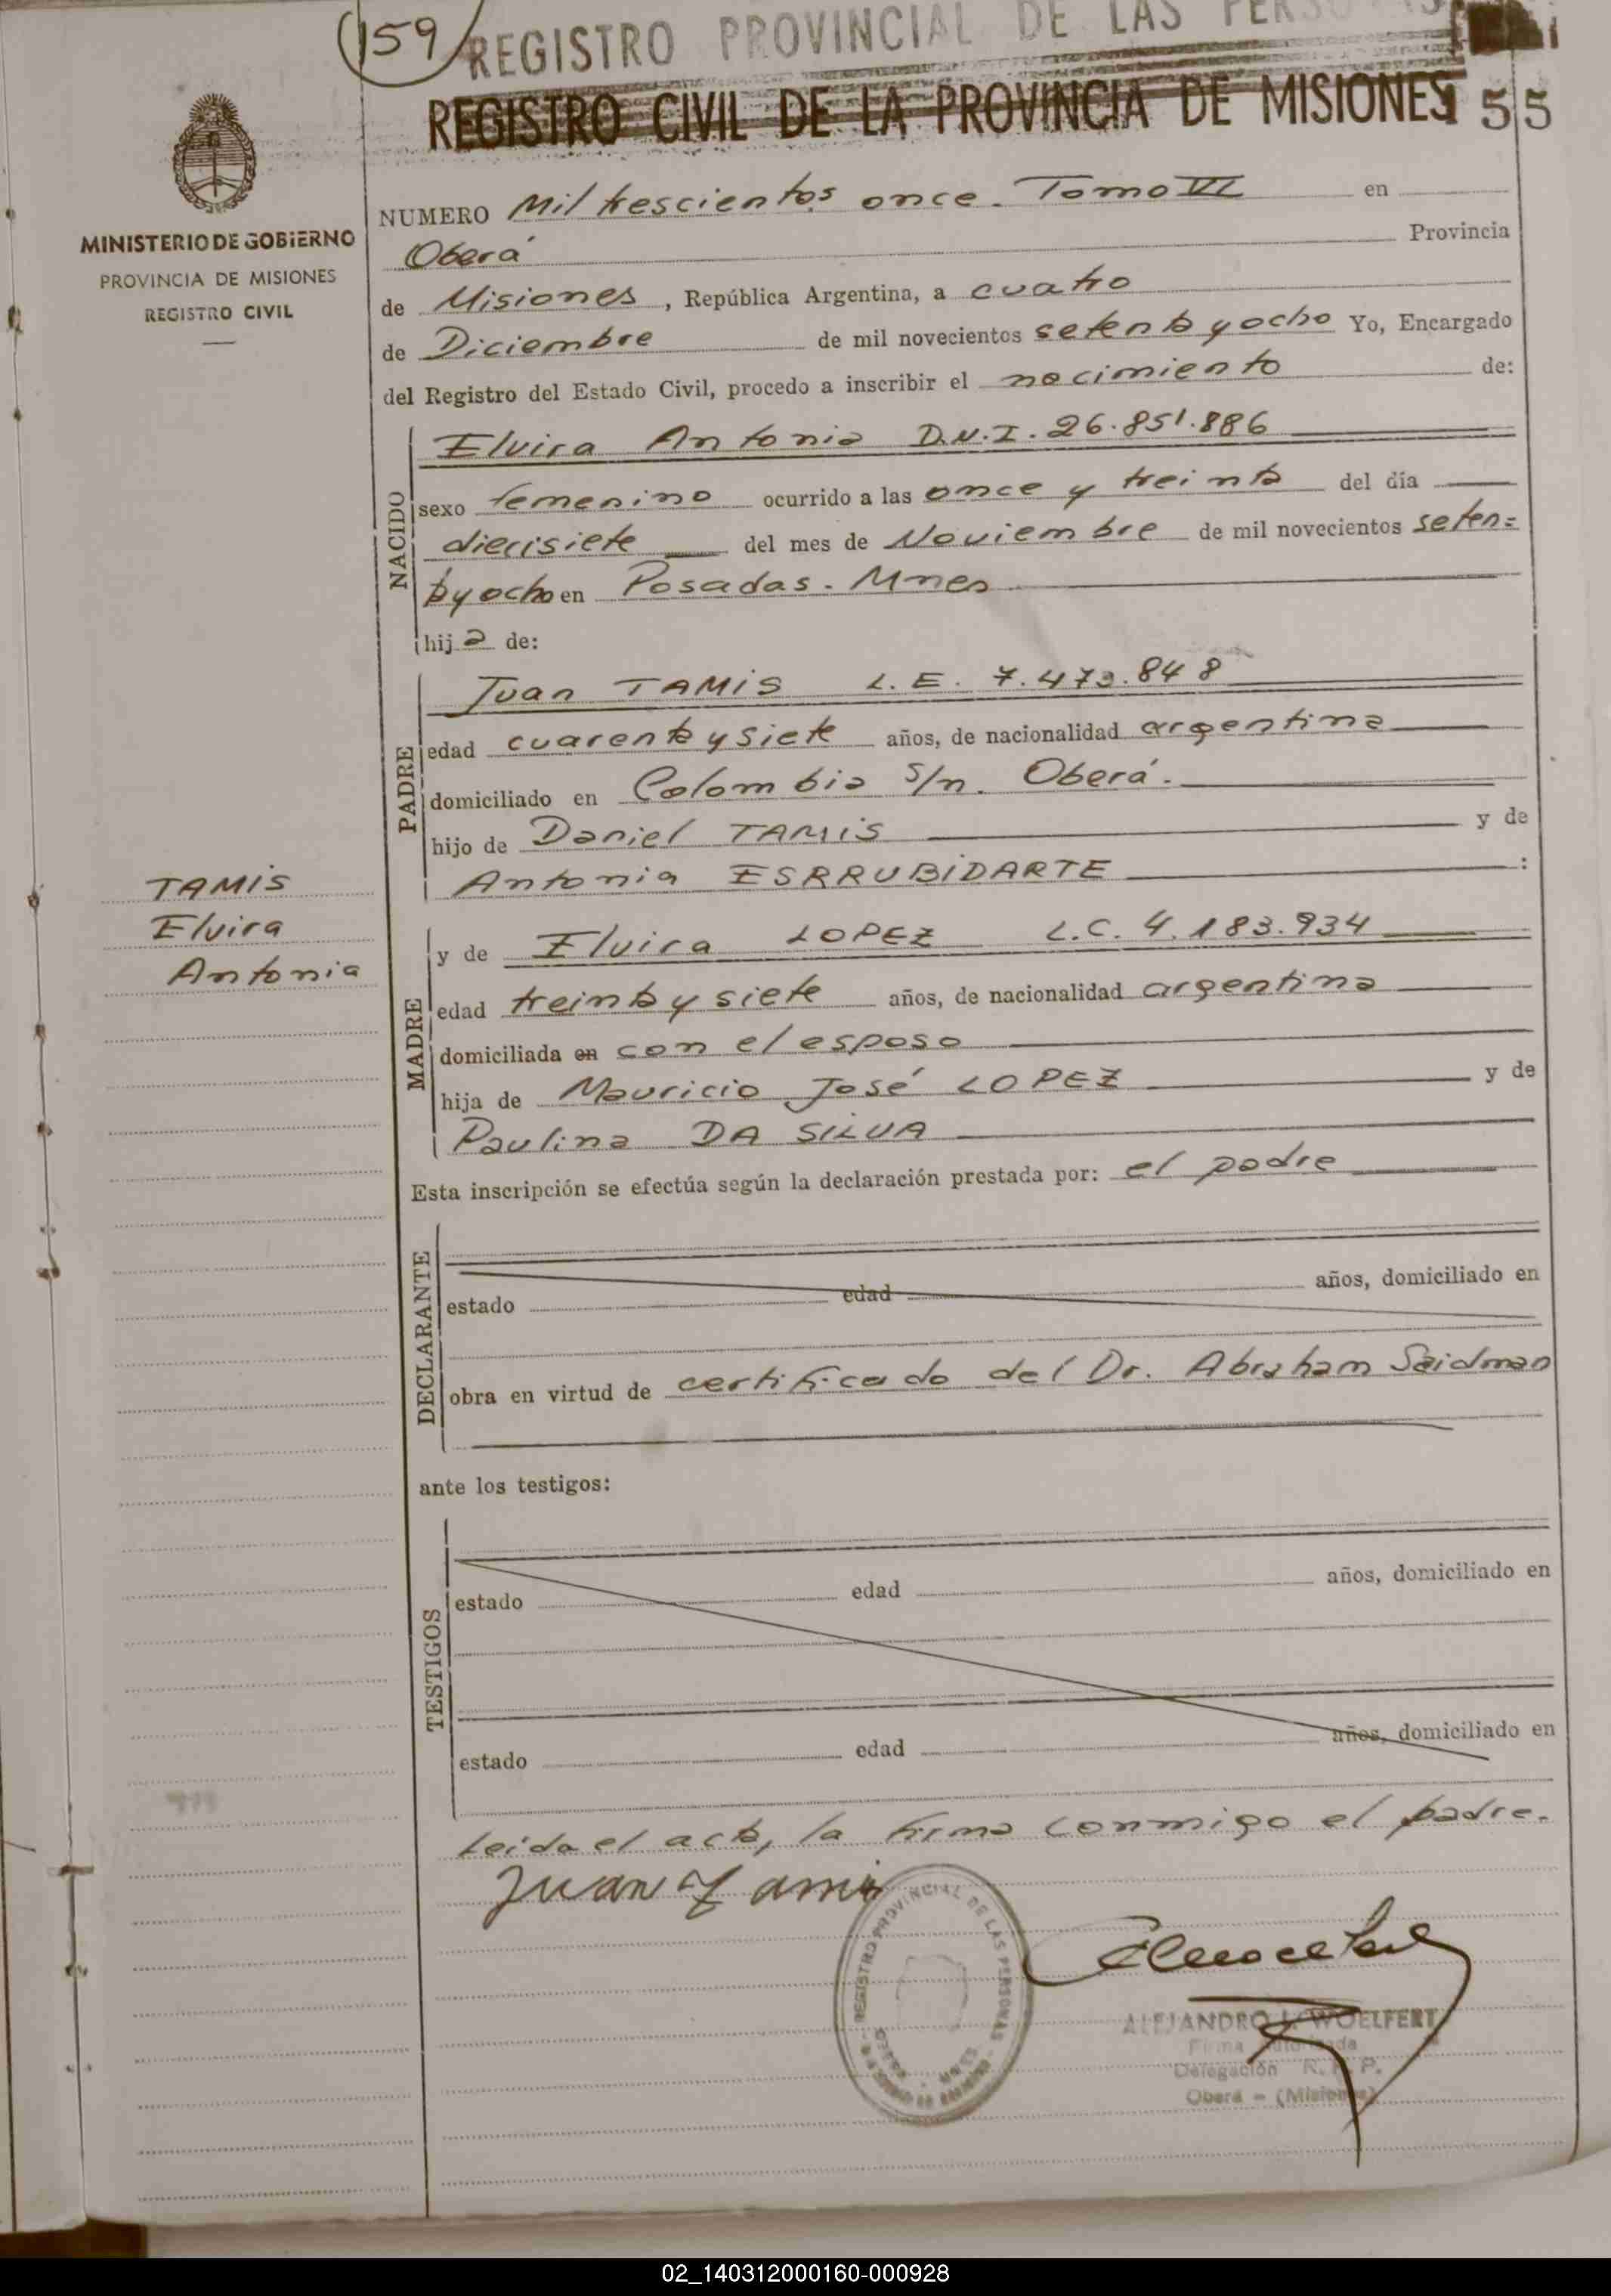 159
REGISTRO PROVINCIAL DE LAS
REGISTRO CIVIL DE LA PROVINCIA DE MISIONES 55
MINISTERIO DE GOBIERNO
PROVINCIA DE MISIONES
REGISTRO CIVIL
NUMERO Mil trescientos once. Tomo VI en
Oberá Provincia
de Misiones, República Argentina, a cuatro
de Diciembre de mil novecientos setenta y ocho Yo, Encargado
del Registro del Estado Civil, procedo a inscribir el nacimiento de:
NACIDO
Elvira Antonia D.N.I. 26.851.886
sexo femenino ocurrido a las once y treinta del día
diecisiete del mes de Noviembre de mil novecientos seten=
ta y ocho en Posadas. Mnes
hija de:
PADRE
Juan TAMIS L.E. 7.473.848
edad cuarenta y siete años, de nacionalidad argentina
domiciliado en Colombia s/n. Oberá.
hijo de Daniel TAMIS y de
Antonia ESRRUBIDARTE :
TAMIS
Elvira
Antonia
MADRE
y de Elvira LOPEZ L.C. 4.183.934
edad treinta y siete años, de nacionalidad argentina
domiciliada en con el esposo
hija de Mauricio José LOPEZ y de
Paulina DA SILVA
Esta inscripción se efectúa según la declaración prestada por: el padre
DECLARANTE
estado edad años, domiciliado en
obra en virtud de certificado del Dr. Abraham Saidman
ante los testigos:
TESTIGOS
estado edad años, domiciliado en
estado edad años, domiciliado en
Leida el acta, la firma conmigo el padre.
Juan Tamis
REGISTRO PROVINCIAL DE LAS PERSONAS
ALEJANDRO WOELFERT
Firma Autorizada
Delegación R. P. P.
Oberá - (Misiones)
02_140312000160-000928